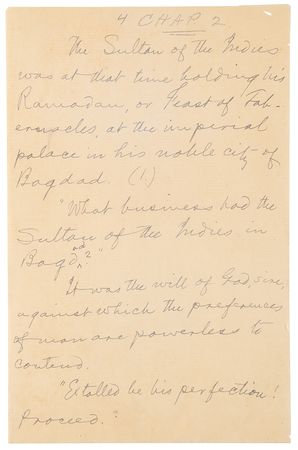 4 CHAP 2
The Sultan of the Indies
was at that time holding his
Ramadan, or Feast of Tab-
ernacles, at the imperial
palace in his noble city of
Bagdad. (1.)
"What business had the
Sultan of the Indies in
Bagdad?"
It was the will of God, sire,
against which the preferences
of man are powerless to
contend.
"Extolled be his perfection!
Proceed."